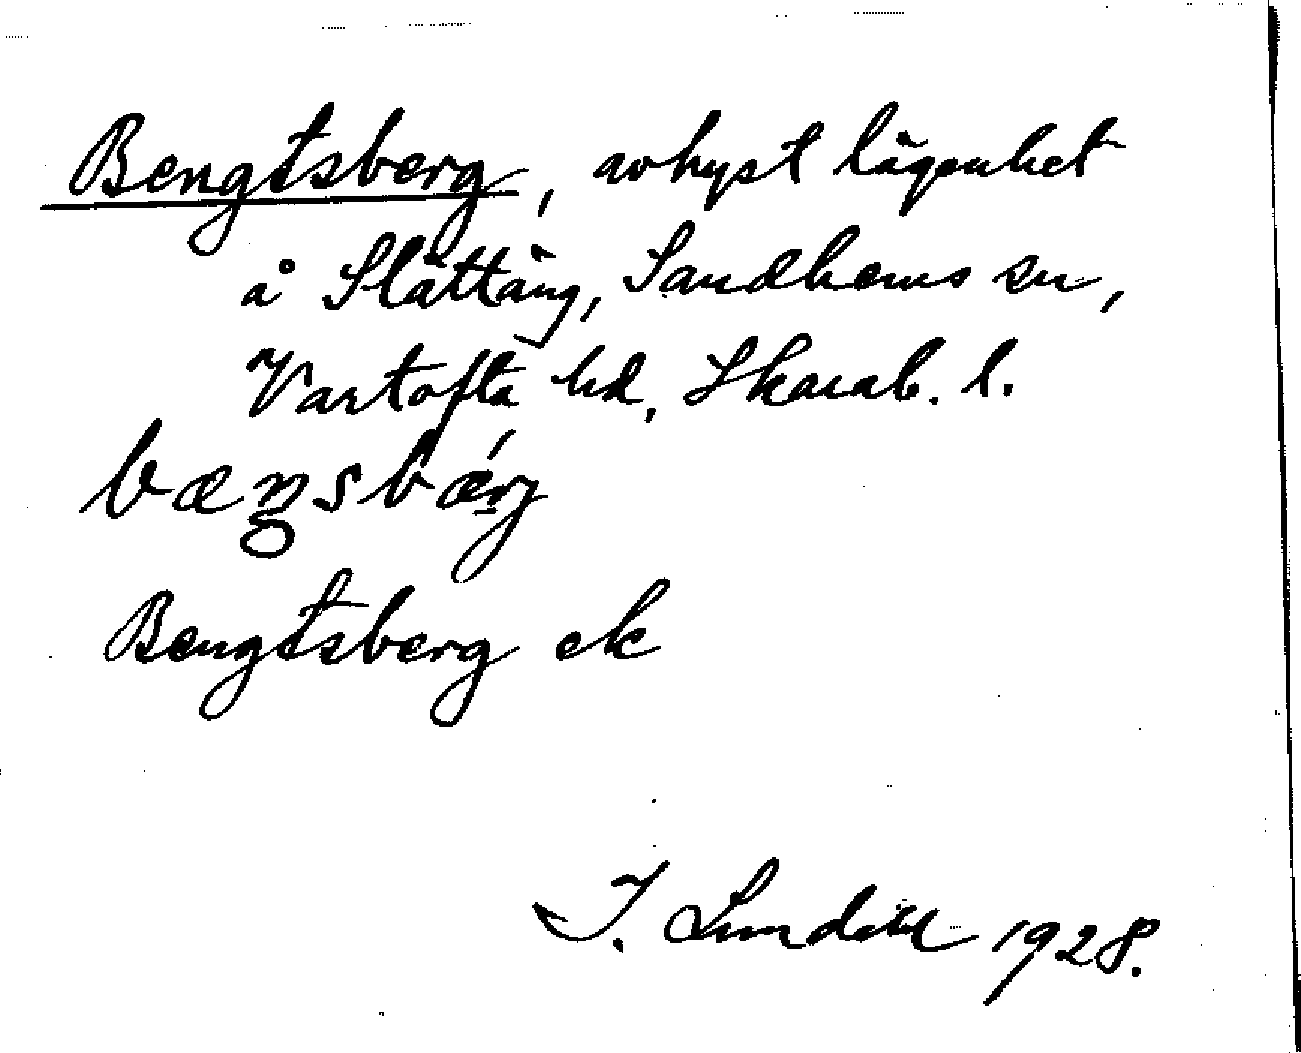 Bengtsberg, avhyst lägenhet
å Slättäng, Sandhems sn,
Vartofta hd, Skarab. l.
bæŋsbærj
Bengtsberg ek
I. Lundahl 1928.